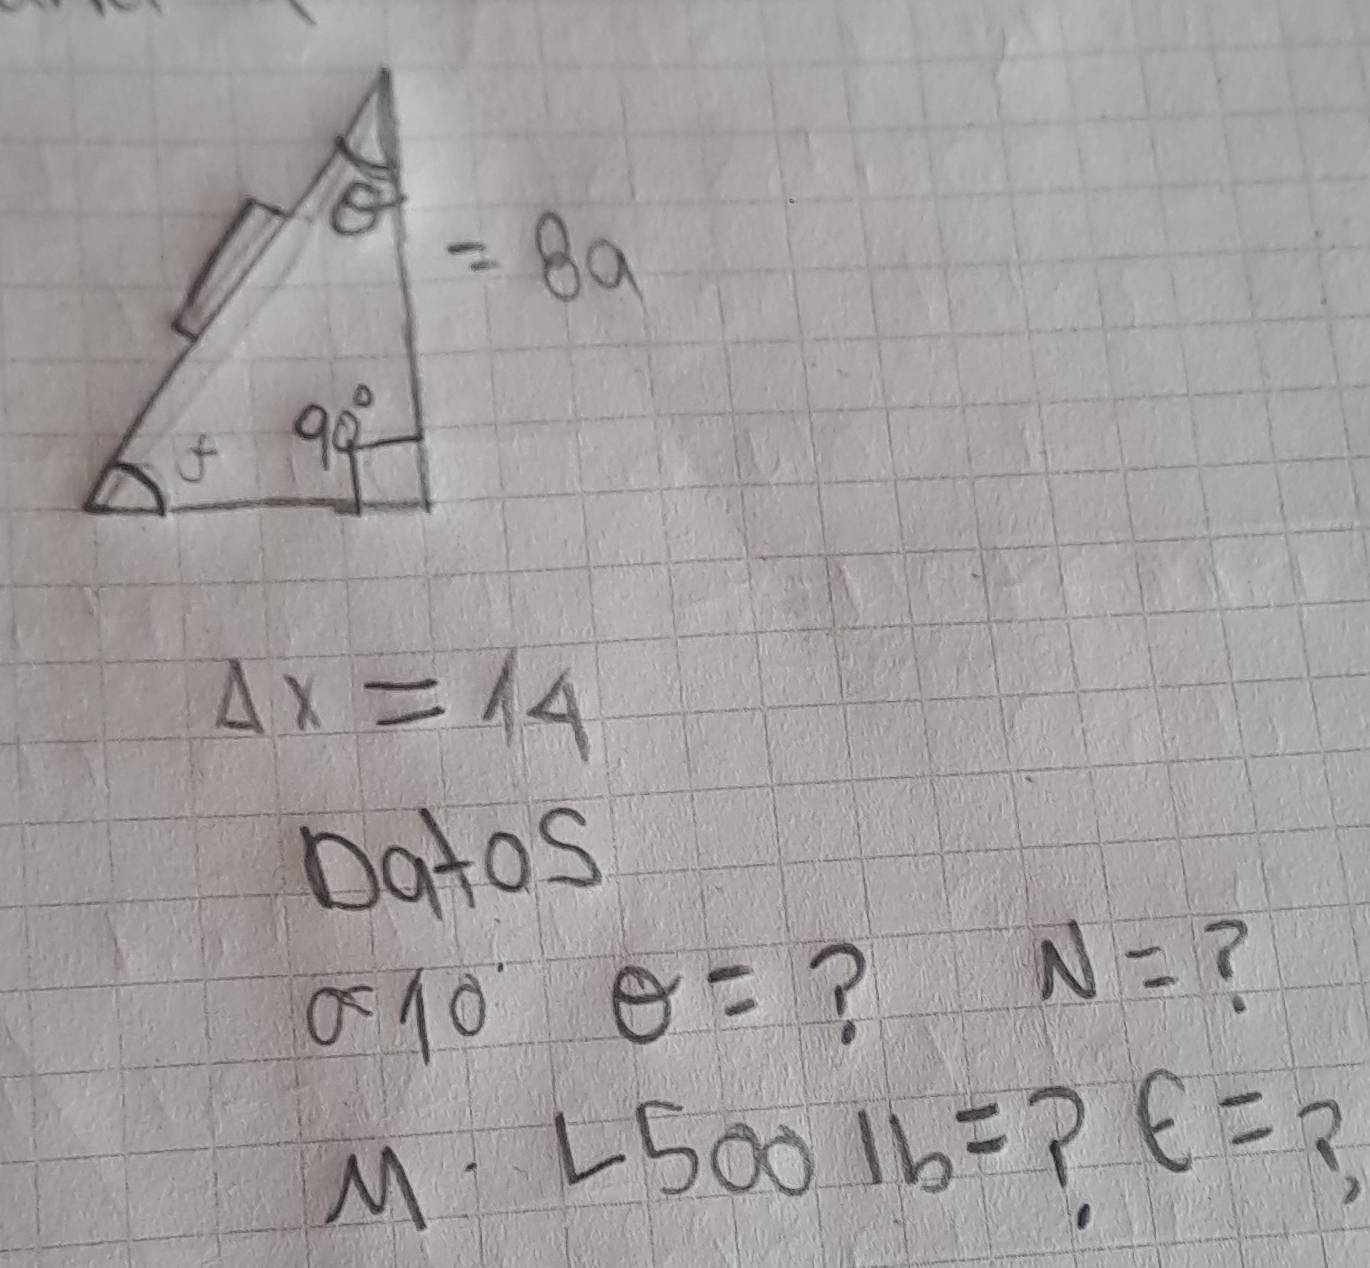 θ
= 8a
90°
Δx = 14
Datos
σ 10° θ = ? N = ?
M · L 500 lb = ? € = ?